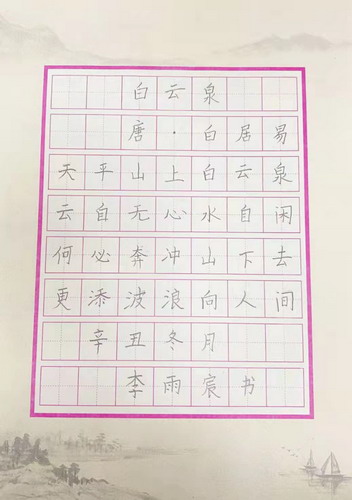 白云泉
唐·白居易
天平山上白云泉
云自无心水自闲
何必奔冲山下去
更添波浪向人间
辛丑冬月
李雨宸书